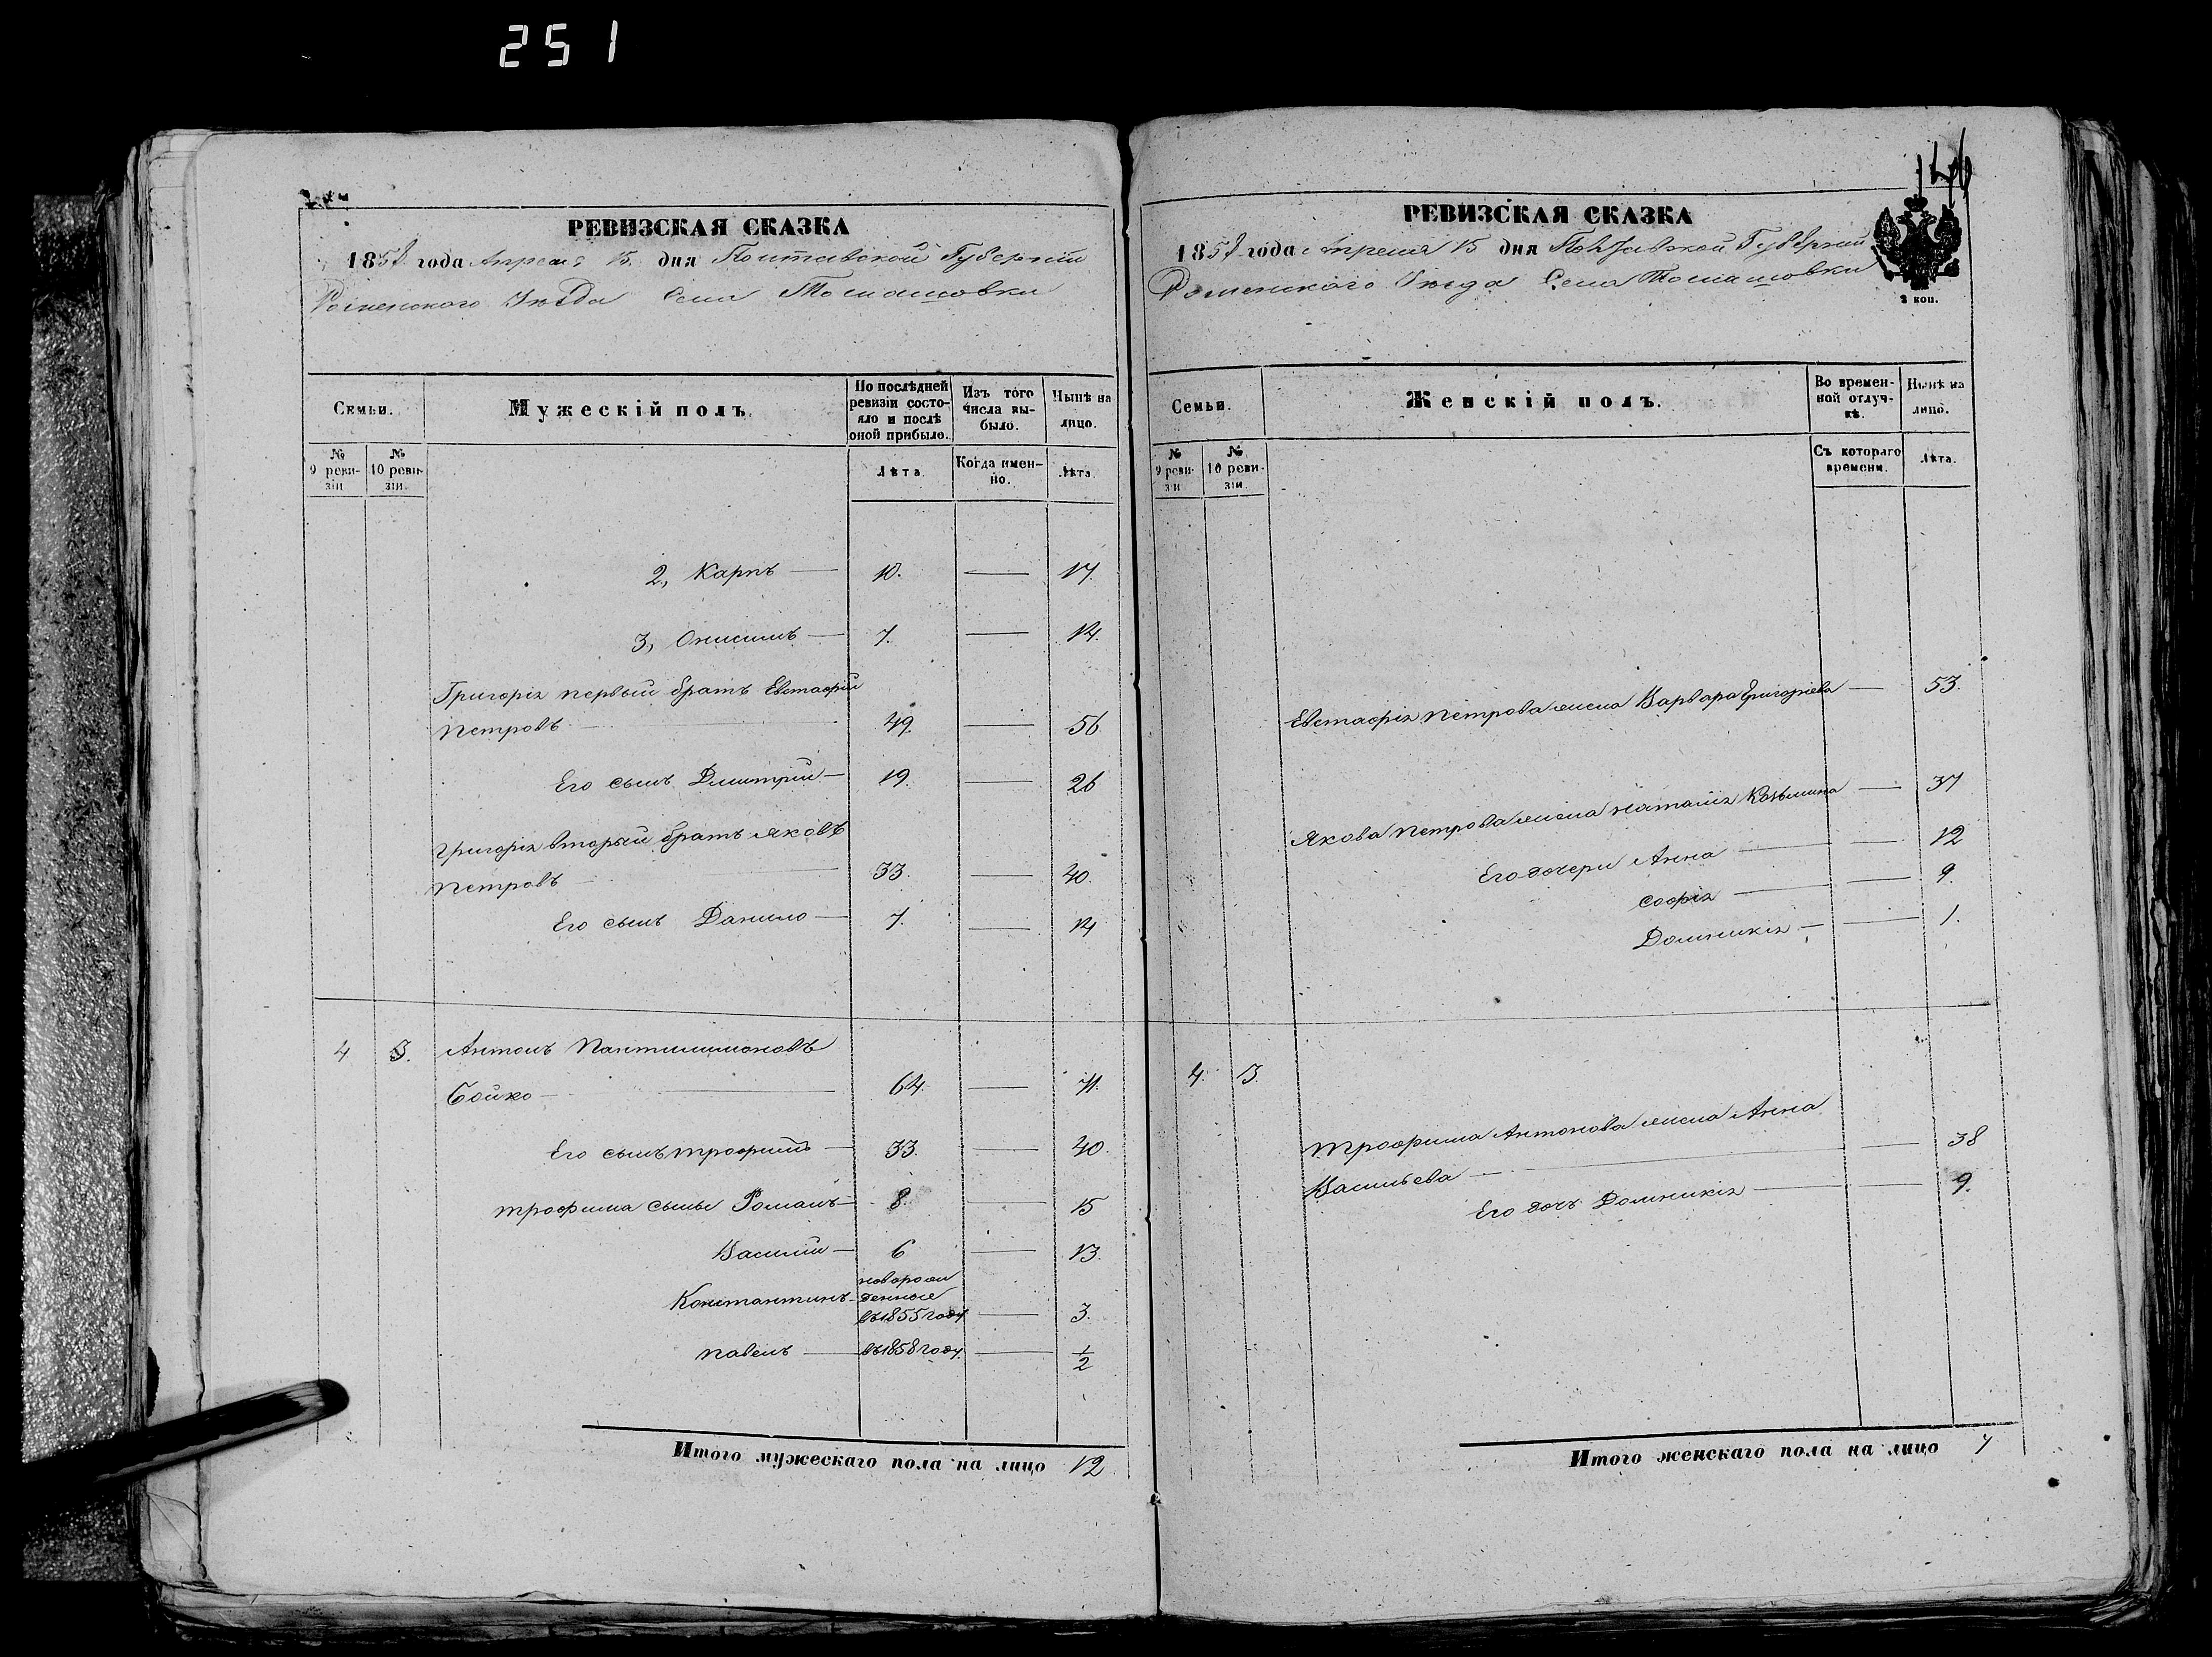 251
РЕВИЗСКАЯ СКАЗКА
1858 года Апреля 15 дня Полтавской Губернии
Роменского Уезда Села Томашовки
Семьи.
Мужескій полъ.
По послѣдней ревизіи состояло и послѣ оной прибыло.
Изъ того числа выбыло.
Нынѣ на лицо.
№ 9 ревизіи
№ 10 ревизіи.
Лѣта.
Когда именно.
Лѣта.
2, Карпъ — 10. — 17.
3, Онисимъ — 7. — 14.
Григорія первый братъ Евстафій
Петровъ — 49. — 56
Его сынъ Дмитрій — 19. — 26
Григорія вторый братъ Яковъ
Петровъ — 33. — 40.
Его сынъ Данило — 7. — 14
4 3. Антонъ Пантилимоновъ
Бойко — 64. — 71.
Его сынъ Трофимъ — 33. — 40.
Трофима сыны Романъ — 8. — 15
Василій — 6 — 13.
новорож
Константинъ — денные
въ 1855 году — 3.
Павелъ — въ 1858 году. — 1/2
Итого мужескаго пола на лицо 12.
146
РЕВИЗСКАЯ СКАЗКА
1858 года Апреля 15 дня Полтавской Губернии
Роменского Уезда Села Томашовки
2 коп.
Семьи.
Женскій полъ.
Во временной отлучкѣ.
Нынѣ на лицо.
№ 9 ревизіи
№ 10 ревизіи.
Съ котораго времени.
Лѣта.
Евстафія Петрова жена Варвара Григоріева — 53.
Якова Петрова жена Наталія Козьмина — 37
Его дочери Анна — 12
Софія — 9.
Домникія — 1.
4. 3.
Трофима Антонова жена Анна
Васильева — 38
Его дочь Домникія — 9.
Итого женскаго пола на лицо 7